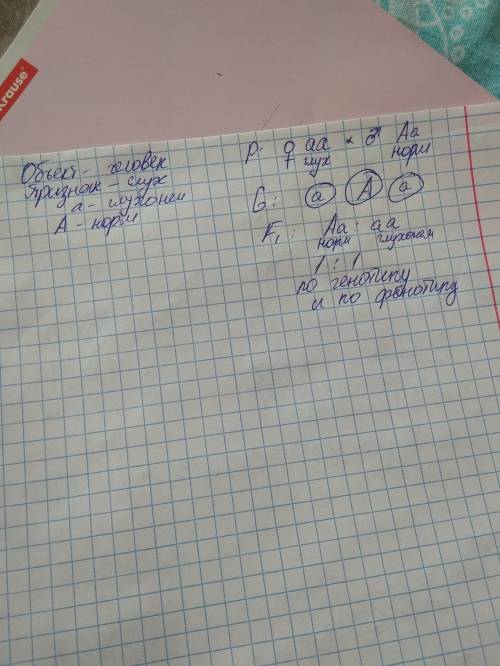 Krause
Объект - человек
Признак - слух
а - глухонем
А - норм
P: ♀ аа × ♂ Аа
глух норм
G: а А а
F₁: Аа : аа
норм глухонем
1 : 1
по генотипу
и по фенотипу